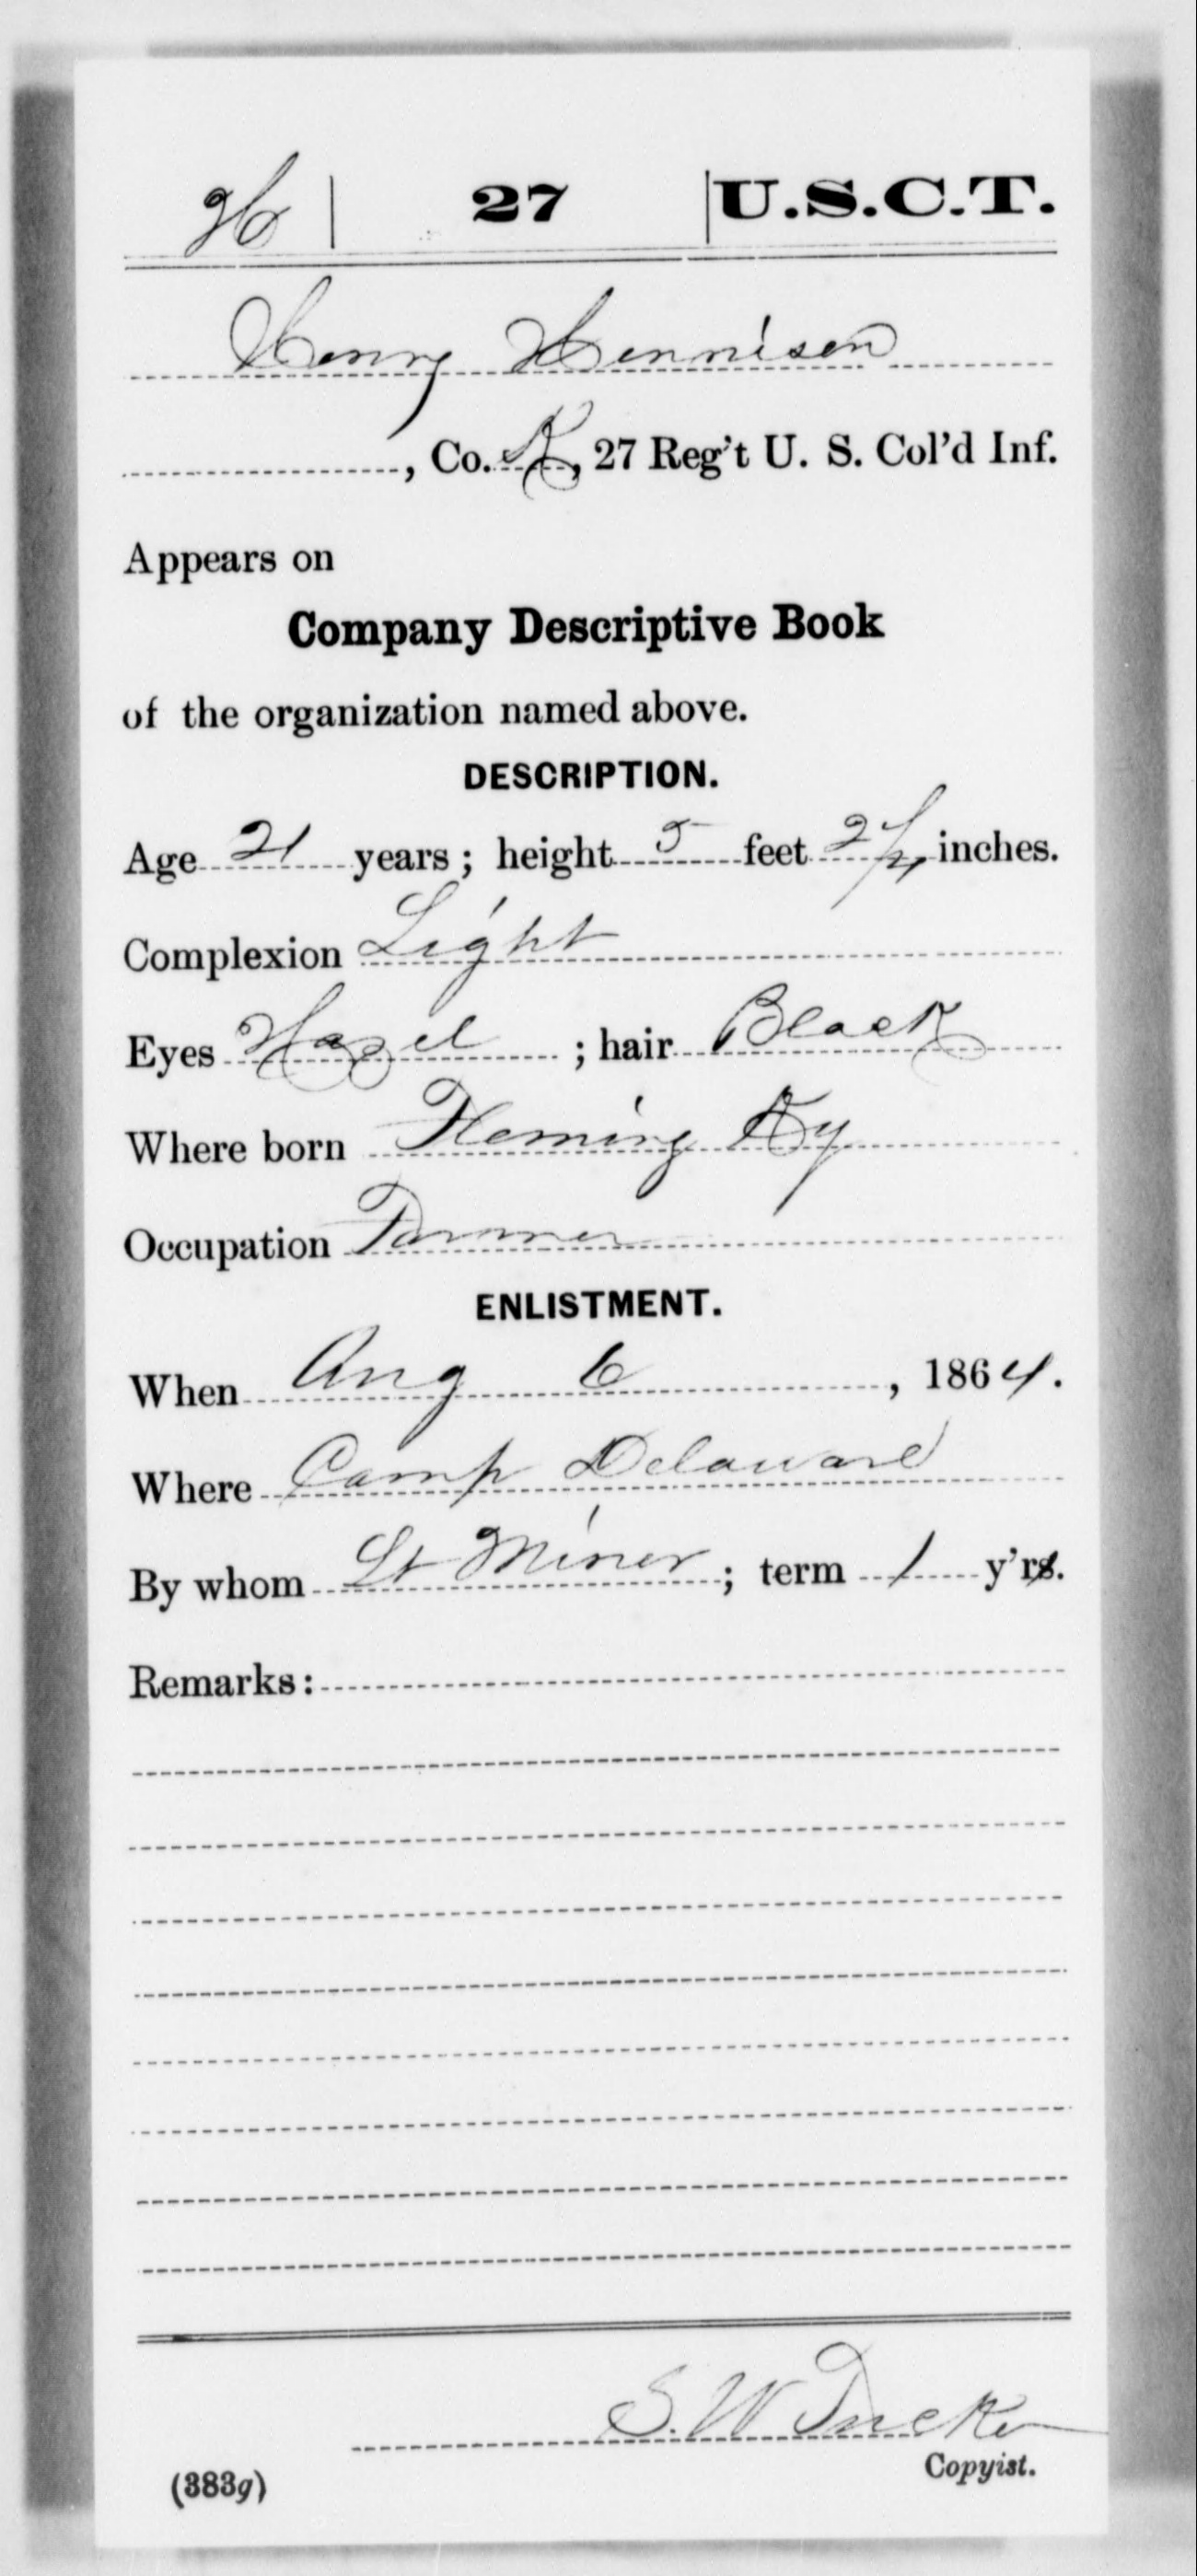 H | 27 | U.S.C.T.
Henry Hennison
, Co. K, 27 Reg't U. S. Col'd Inf.
Appears on
Company Descriptive Book
of the organization named above.
DESCRIPTION.
Age 21 years; height 5 feet 2 1/2 inches.
Complexion Light
Eyes Hazel ; hair Black
Where born Fleming Ky
Occupation Farmer
ENLISTMENT.
When Aug 6, 1864.
Where Camp Delaware
By whom Lt Miner; term 1 y'rs.
Remarks:
S. W. Tucker
Copyist.
(383g)